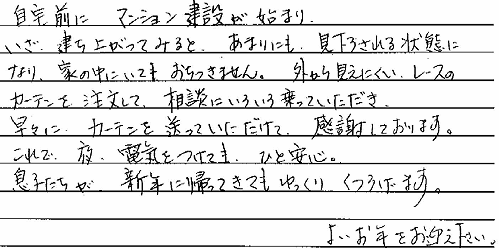 自宅前に マンション建設が始まり、
いざ 建ち上がってみると、あまりにも 見下ろされる状態に
なり、家の中にいても おちつきません。外から見えにくい、レースの
カーテンを 注文して、相談にいろいろ乗っていただき、
早々に カーテンを 送っていただけて、感謝しております。
これで、夜、電気をつけても、ひと安心。
息子たちが、新年に帰ってきても ゆっくり くつろげます。
よいお年をお迎え下さい。